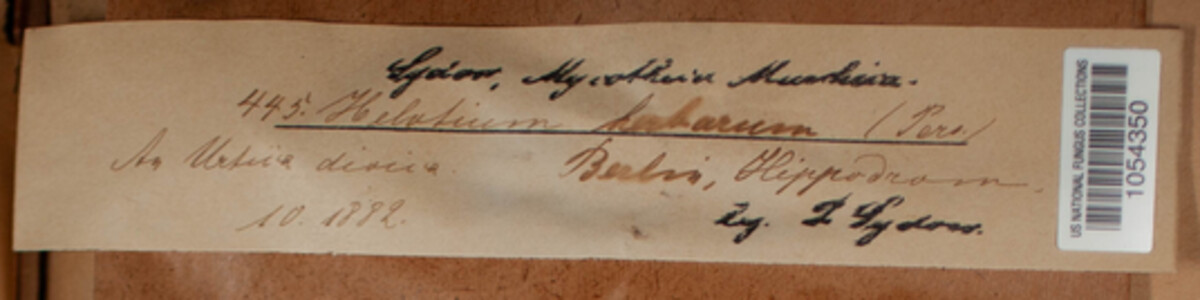 Sydow, Mycotheca Marchica.
445. Helotium herbarum (Pers.)
An Urtica dioica. Berlin, Hippodrom.
10. 1882. leg. P. Sydow.
US NATIONAL FUNGUS COLLECTIONS
1054350